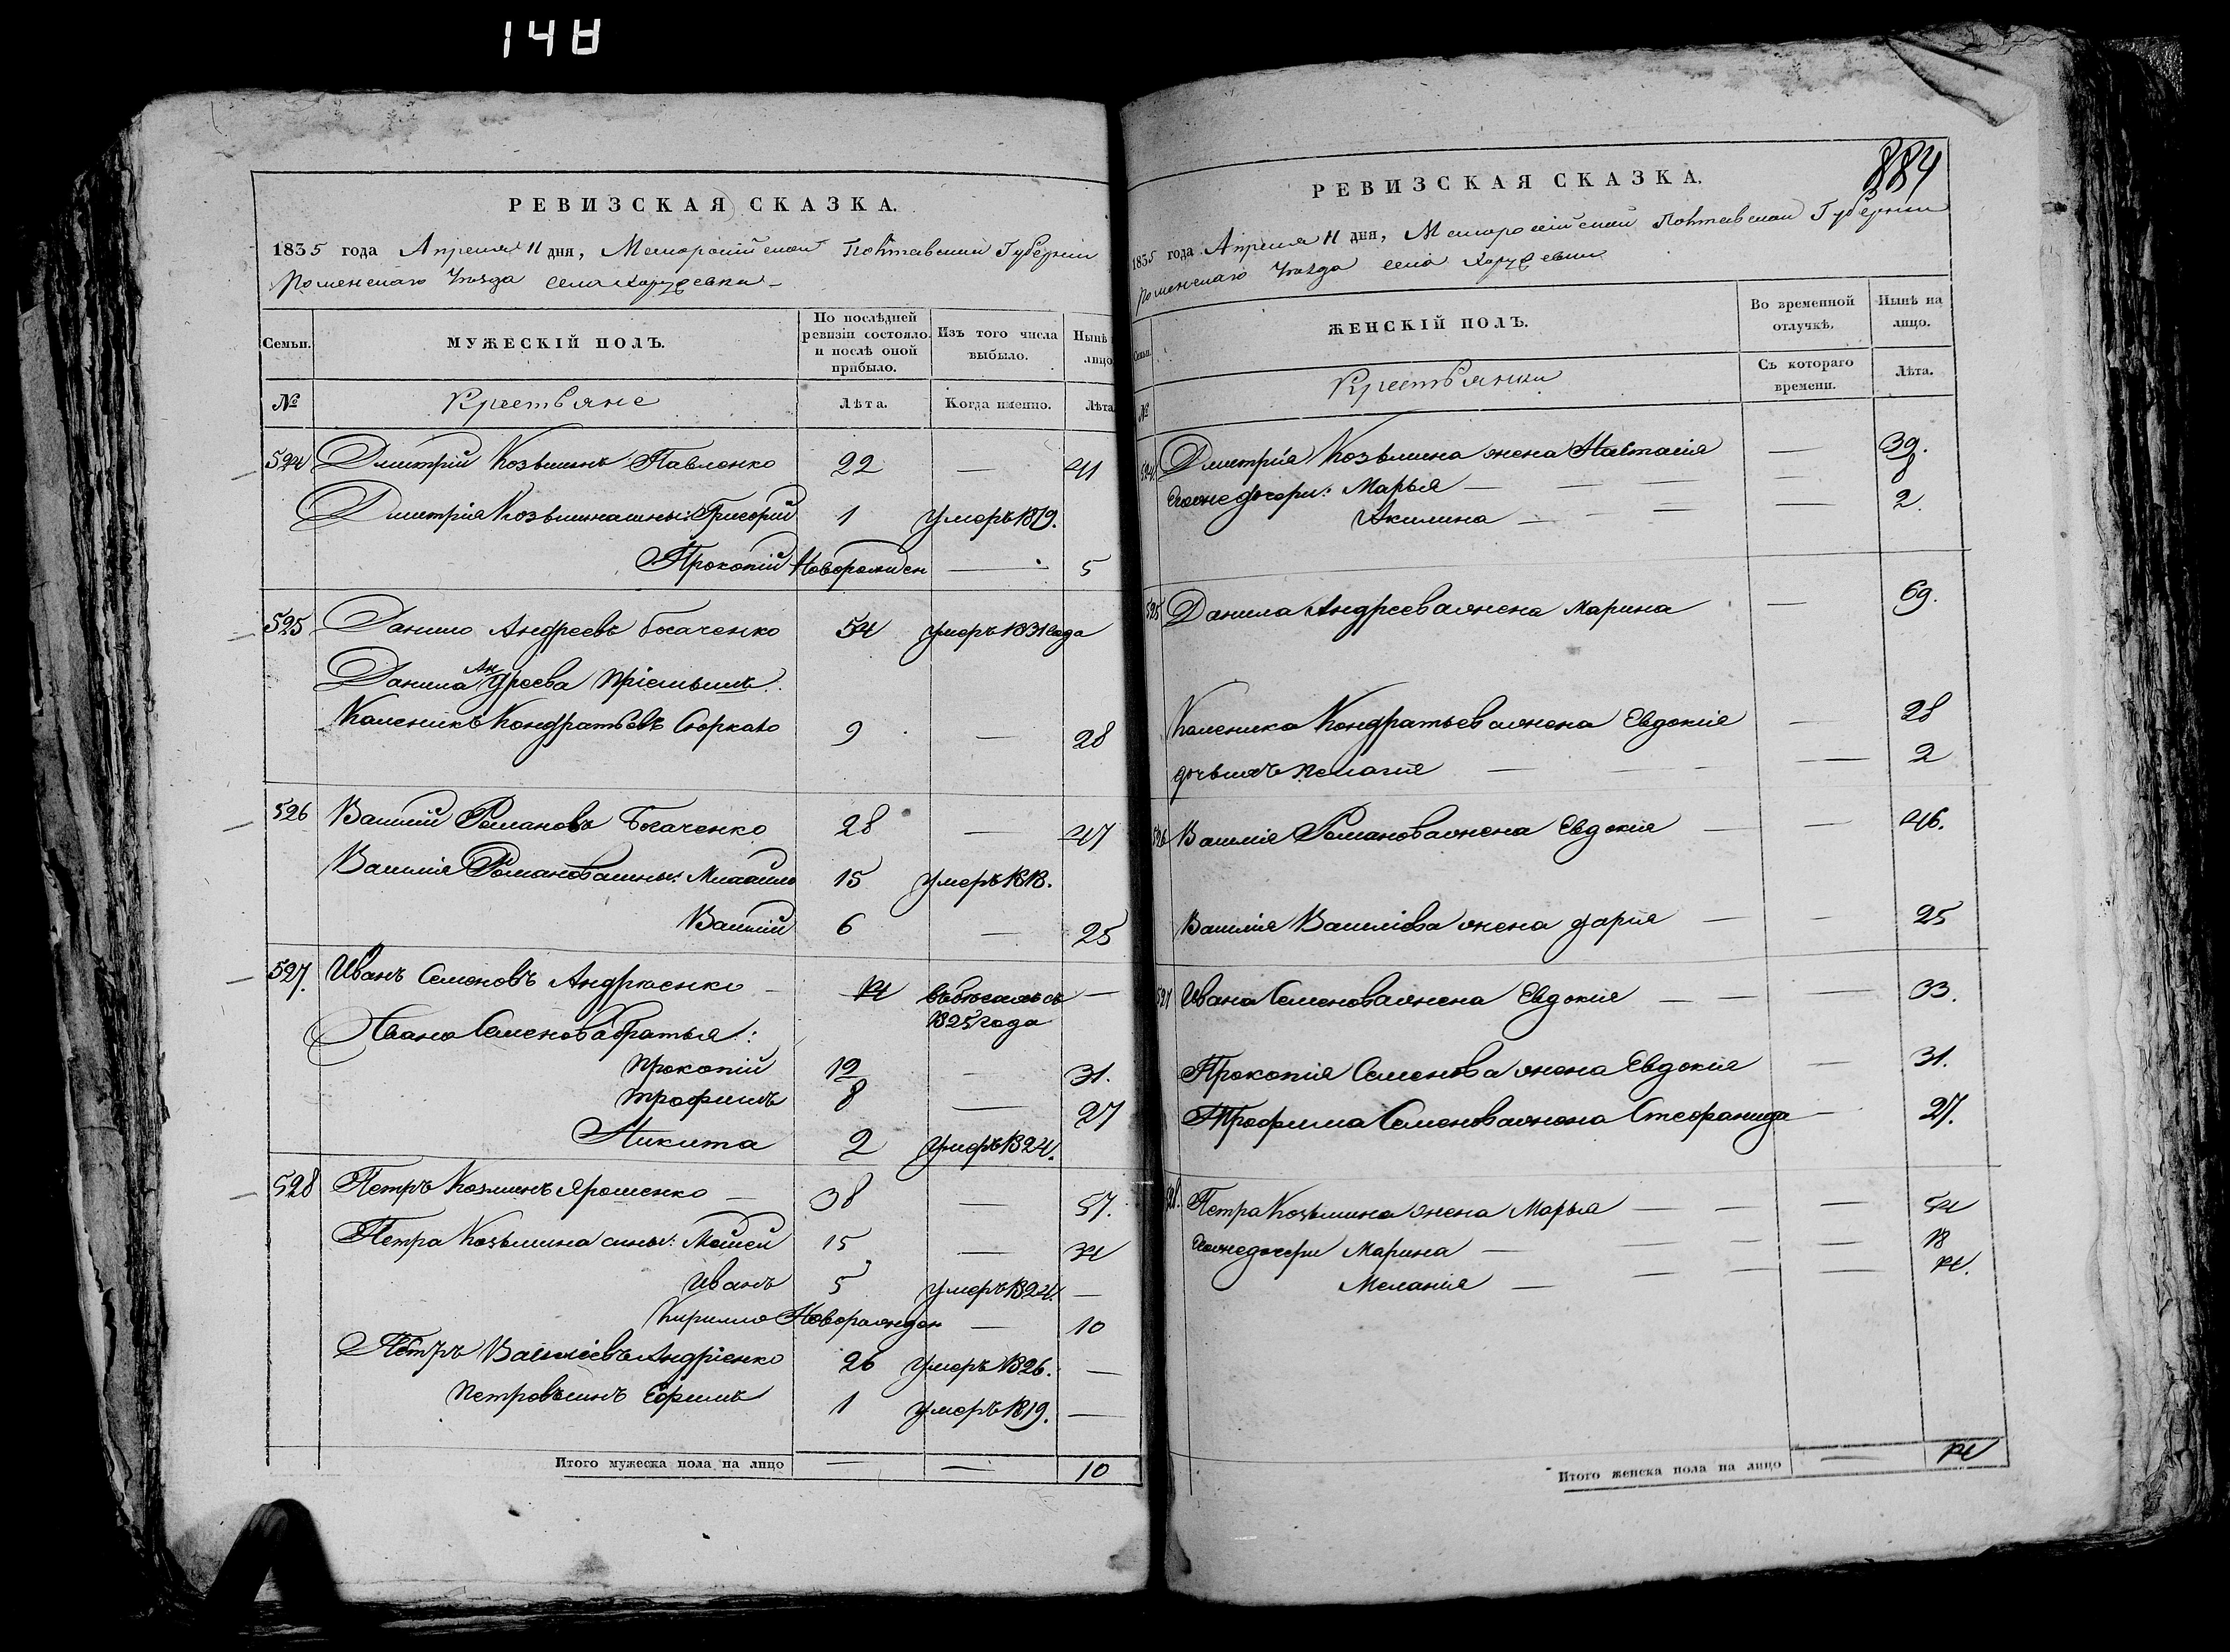 148
РЕВИЗСКАЯ СКАЗКА.
1835 года Апреля 11 дня, Малороссійской Полтавской Губерніи
Роменскаго Уѣзда села Хоружевки
Семьи.
МУЖЕСКІЙ ПОЛЪ.
По послѣдней ревизіи состояло и послѣ оной прибыло.
Изъ того числа выбыло.
Нынѣ лицо
№
Крестьяне
Лѣта.
Когда именно.
Лѣта
524 Дмитрій Козьминъ Павленко 22 — 41
Дмитрія Козьмина сыны: Григорій 1 умеръ 1819.
Прокопій Новорожден — 5
525 Данило Андреевъ Богаченко 54 умеръ 1831 года
Данила Андреева пріемышъ
Каленикъ Кондратьевъ 9 — 28
526 Василій Романовъ Богаченко 28 — 47
Василія Романова сыны: Михайло 15 умеръ 1818.
Василій 6 — 25
527. Иванъ Семеновъ Андріенко 14 —
1825 года
Ивана Семенова братья:
Прокопій 12 — 31.
Трофимъ 8 — 27
Никита 2 умеръ 1824.
528 Петръ Козминъ Ярошенко — 38 — 57.
Петра Козьмина сыны: Мойсей 15 — 34
Иванъ 5 умеръ 1824. —
Кирило Новорожден — 10
Петръ Василіевъ Андріенко 26 умеръ 1826. —
Петровъ сынъ Ефимъ 1 умеръ 1819. —
Итого мужеска пола на лицо — — 10
884
РЕВИЗСКАЯ СКАЗКА.
1835 года Апреля 11 дня, Малороссійской Полтавской Губерніи
Роменскаго Уѣзда села Хоружевки
Семьи
ЖЕНСКІЙ ПОЛЪ.
Во временной отлучкѣ,
Нынѣ на лицо.
№
Крестьянки
Съ котораго времени.
Лѣта.
524. Дмитрія Козьмина жена Настасія — 39.
Егоже дочери: Марья — — — — 8
Акилина — — — — 2.
525 Данила Андреева жена Марина — 69.
Каленика Кондратьева жена Евдокія — 28
дочь ихъ Пелагія — — — 2
526 Василія Романова жена Евдокія — — 46.
Василія Василіева жена Дарія — — 25
527 Ивана Семенова жена Евдокія — — — 33.
Прокопія Семенова жена Евдокія — 31.
Трофима Семенова жена Стефанида — 27.
528. Петра Козьмина жена Марья — — — 54
Егоже дочери Марина — — — — 18
Меланія — — — — 14.
Итого женска пола на лицо — 14